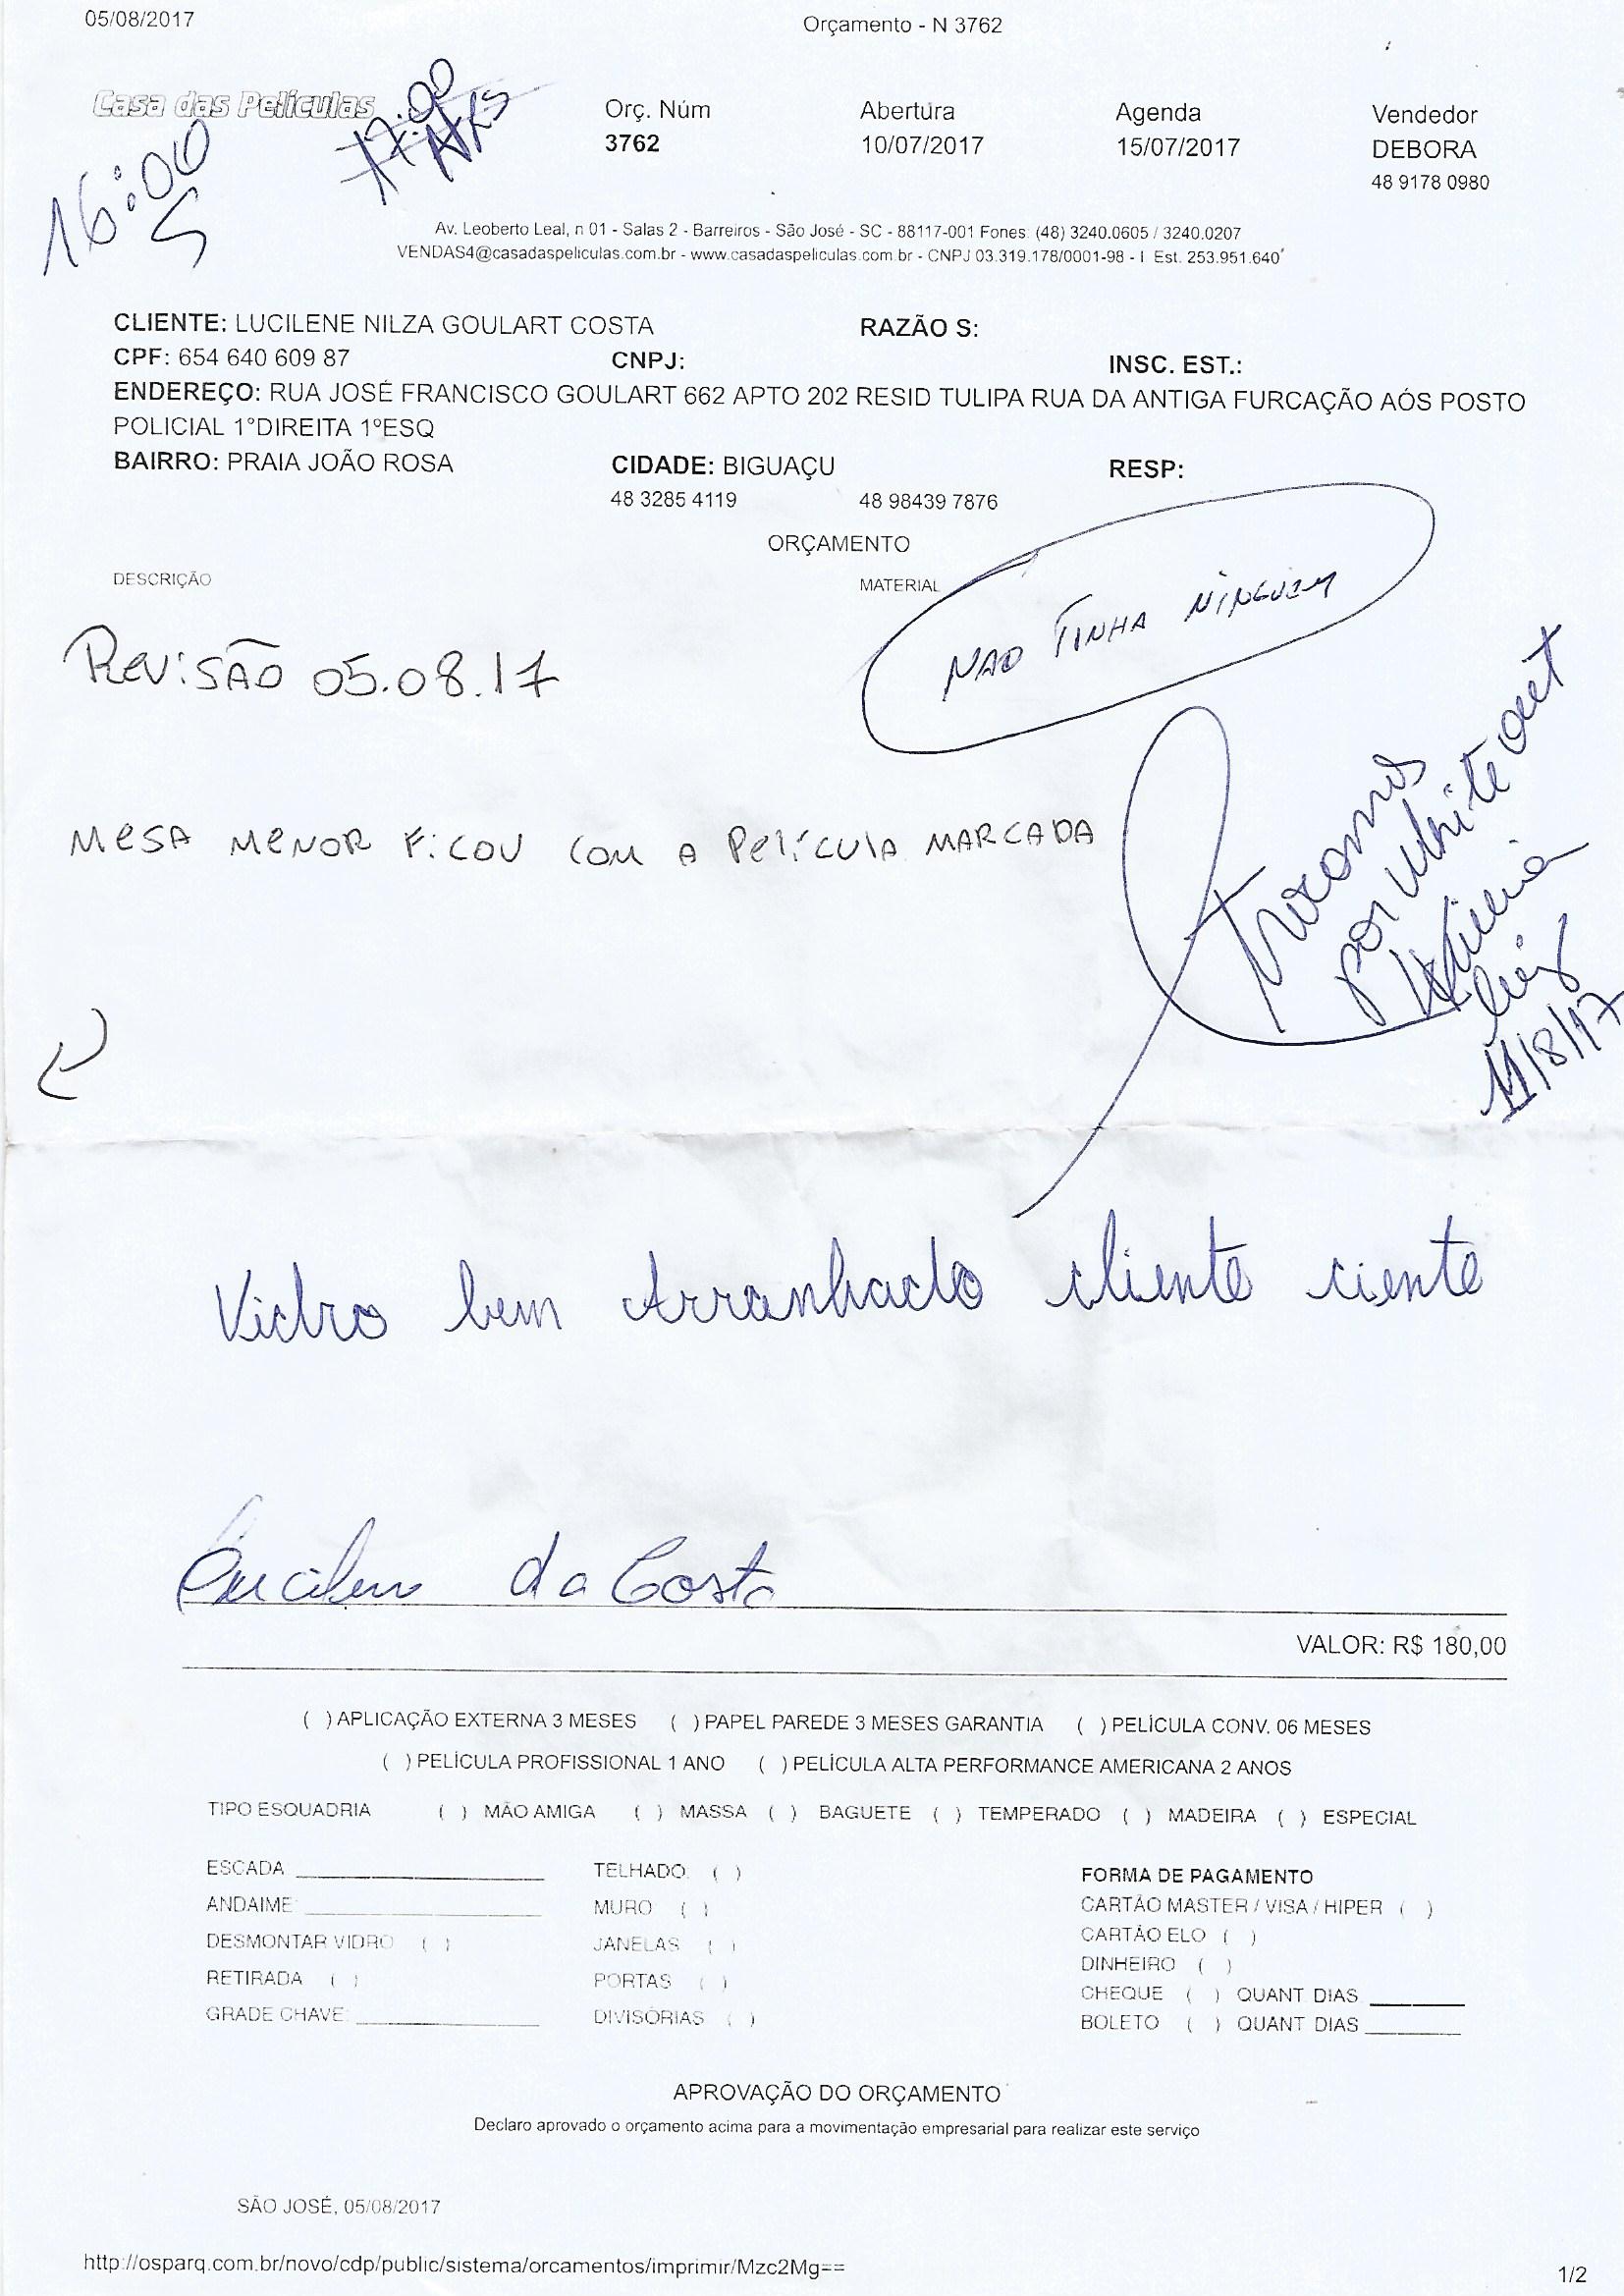 05/08/2017 Orçamento - N 3762
Casa das Películas
16:00
17:00
Orç. Núm Abertura Agenda Vendedor
3762 10/07/2017 15/07/2017 DEBORA
48 9178 0980
Av. Leoberto Leal, n 01 - Salas 2 - Barreiros - São José - SC - 88117-001 Fones: (48) 3240.0605 / 3240.0207
VENDAS4@casadaspeliculas.com.br - www.casadaspeliculas.com.br - CNPJ 03.319.178/0001-98 - I Est. 253.951.640
CLIENTE: LUCILENE NILZA GOULART COSTA RAZÃO S:
CPF: 654 640 609 87 CNPJ: INSC. EST.:
ENDEREÇO: RUA JOSÉ FRANCISCO GOULART 662 APTO 202 RESID TULIPA RUA DA ANTIGA FURCAÇÃO AÓS POSTO
POLICIAL 1°DIREITA 1ºESQ
BAIRRO: PRAIA JOÃO ROSA CIDADE: BIGUAÇU RESP:
48 3285 4119 48 98439 7876
ORÇAMENTO
DESCRIÇÃO MATERIAL
NAO TINHA NINGUEM
REVISÃO 05.08.17
MESA MENOR FICOU COM A PELÍCULA MARCADA
trocamos
por white out
11/8/17
Vidro bem Arranhado cliente ciente
da Costa
VALOR: R$ 180,00
( ) APLICAÇÃO EXTERNA 3 MESES ( ) PAPEL PAREDE 3 MESES GARANTIA ( ) PELÍCULA CONV. 06 MESES
( ) PELÍCULA PROFISSIONAL 1 ANO ( ) PELÍCULA ALTA PERFORMANCE AMERICANA 2 ANOS
TIPO ESQUADRIA ( ) MÃO AMIGA ( ) MASSA ( ) BAGUETE ( ) TEMPERADO ( ) MADEIRA ( ) ESPECIAL
ESCADA TELHADO: ( ) FORMA DE PAGAMENTO
ANDAIME: MURO ( ) CARTÃO MASTER / VISA / HIPER ( )
DESMONTAR VIDRO ( ) JANELAS ( ) CARTÃO ELO ( )
RETIRADA ( ) PORTAS ( ) DINHEIRO ( )
GRADE CHAVE: DIVISÓRIAS ( ) CHEQUE ( ) QUANT DIAS
BOLETO ( ) QUANT DIAS
APROVAÇÃO DO ORÇAMENTO
Declaro aprovado o orçamento acima para a movimentação empresarial para realizar este serviço
SÃO JOSÉ, 05/08/2017
http://osparq.com.br/novo/cdp/public/sistema/orcamentos/imprimir/Mzc2Mg== 1/2